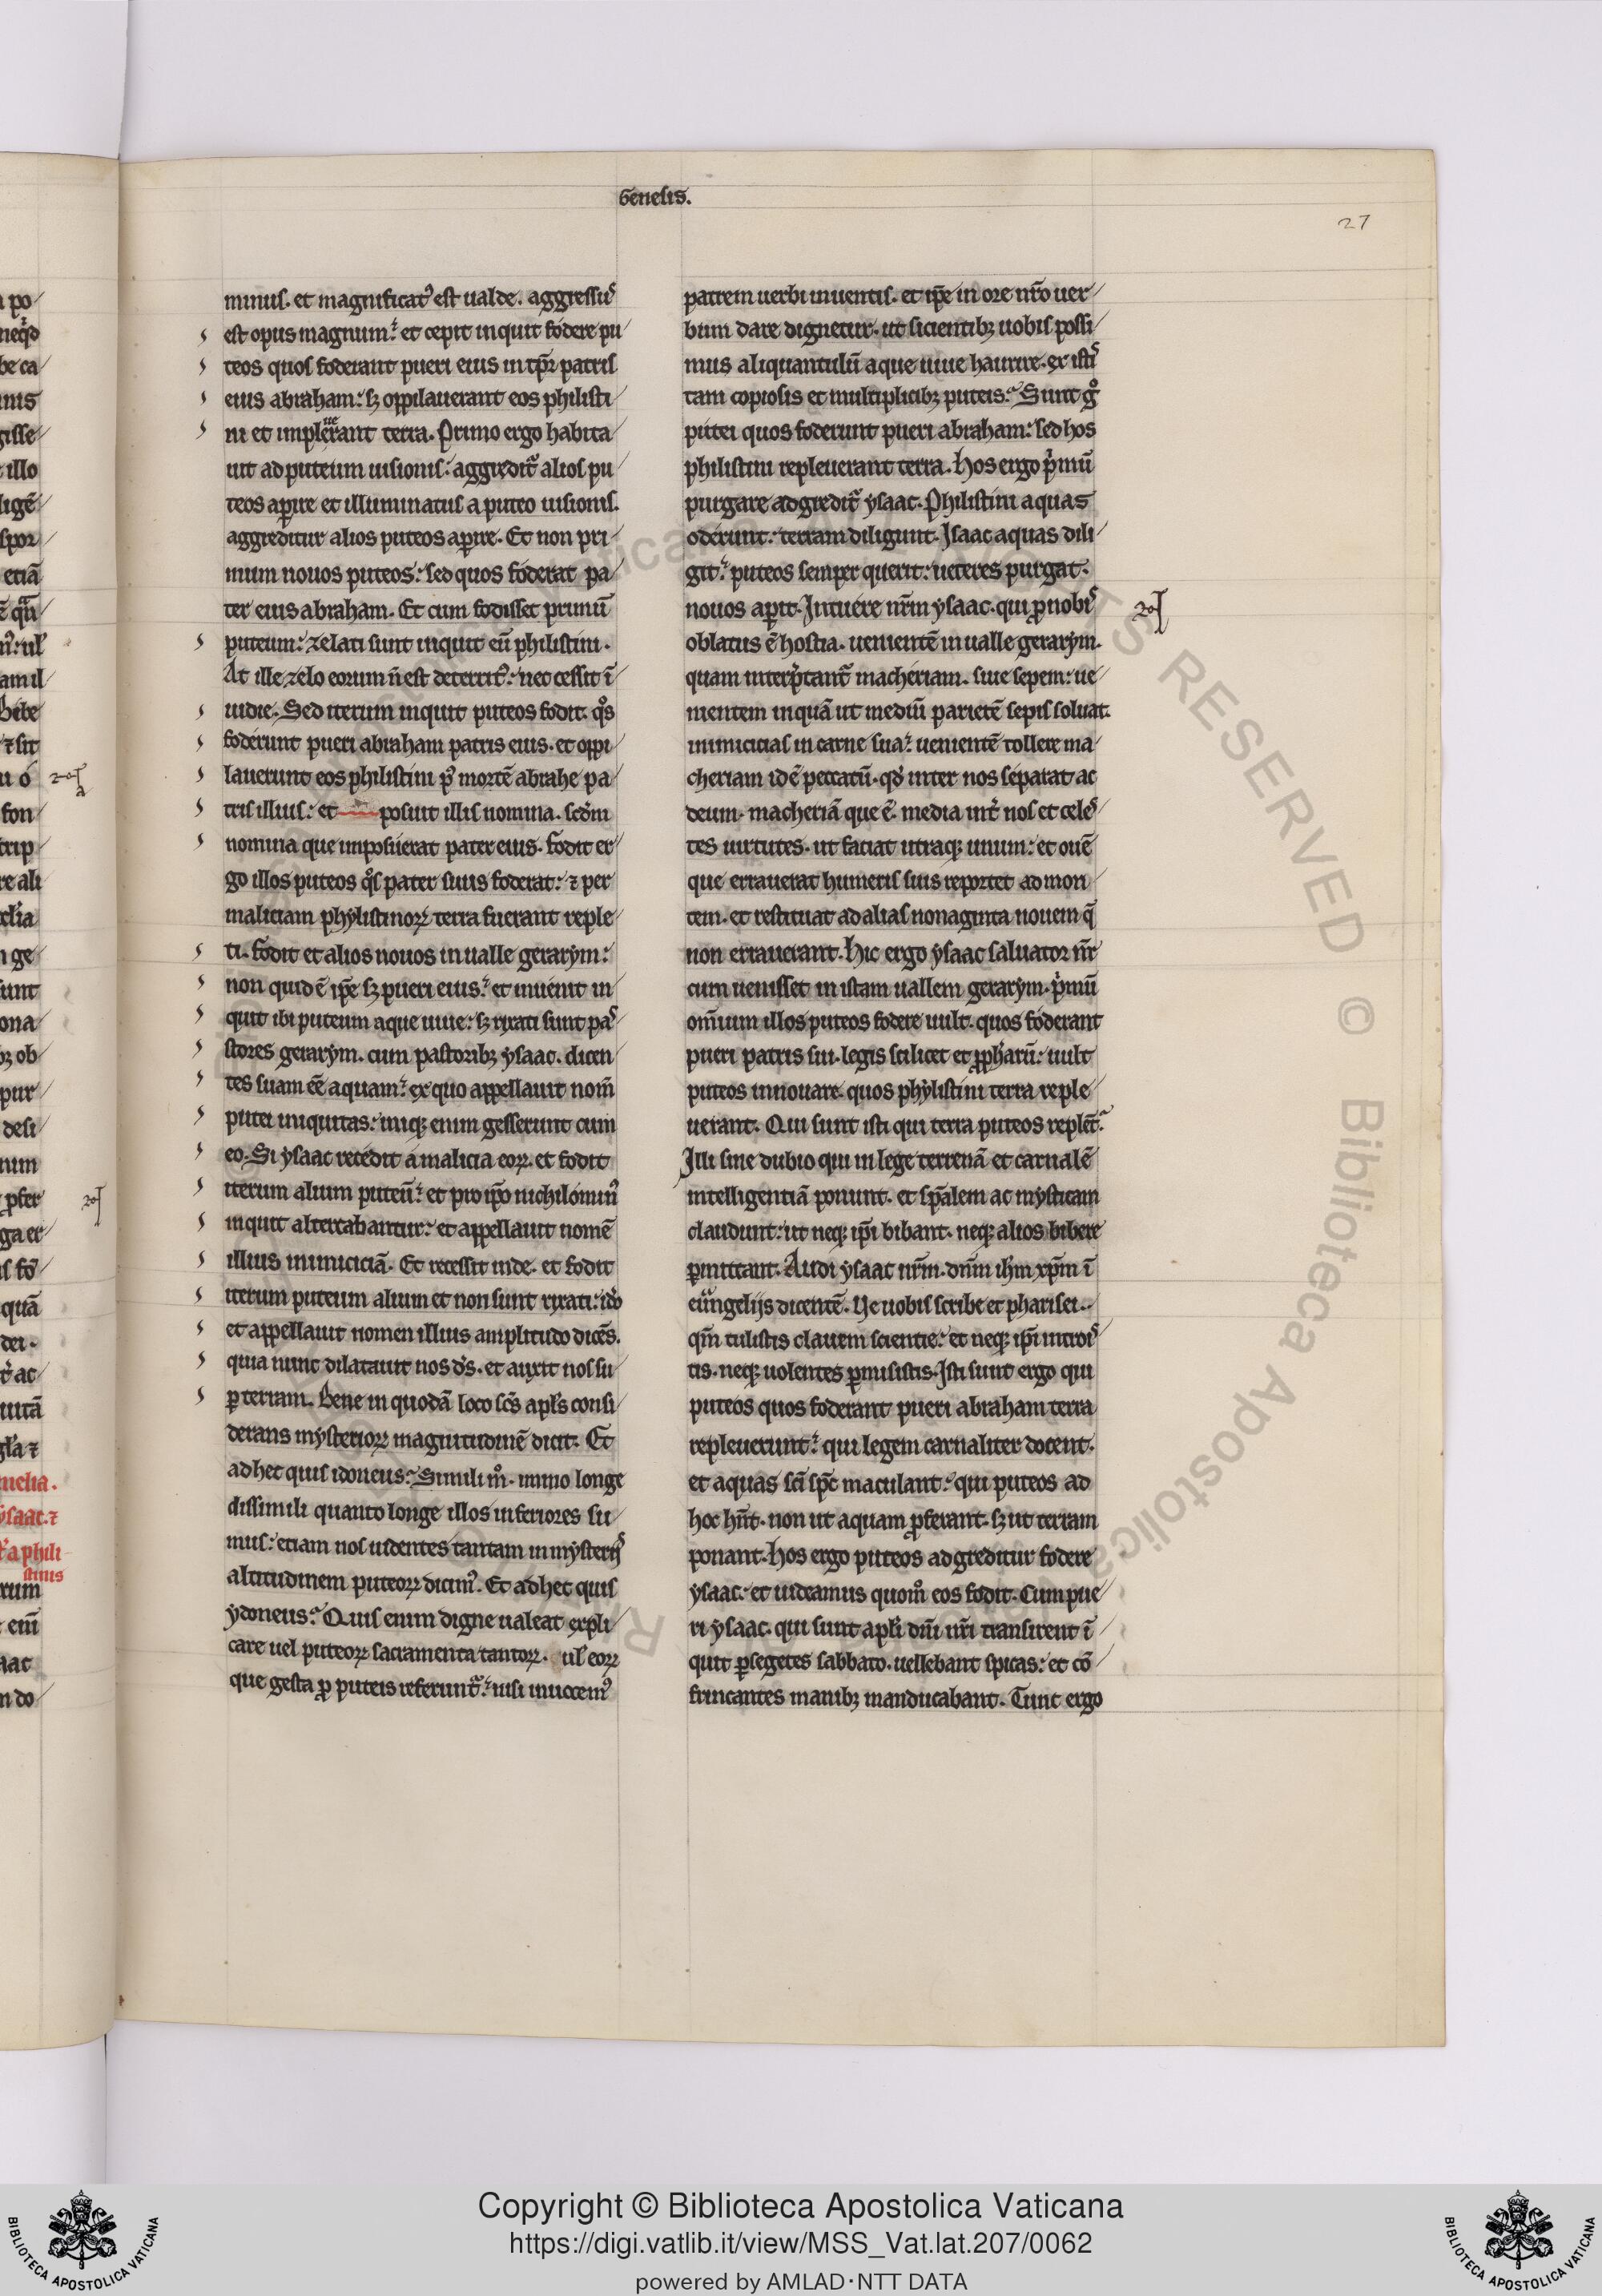 Genesis.
27
minus. et magnificatꝰ est ualde. aggressuˢ
est opus magnum: et cepit inquit fodere pu
teos quos foderant pueri eius in tp̄r patris
eius abraham: sꝫ oppilauerant eos philisti
ni et impleuerant terra. Primo ergo habita
uit ad puteum uisionis: aggredit᷑ alios pu
teos aꝑire et illuminatus a puteo uisionis.
aggreditur alios puteos aꝑire. Et non pri
mum nouos puteos: sed quos foderat pa
ter eius abraham. Et cum fodisset primū
puteum: zelati sunt inquit eū philistini.
At ille zelo eorum n̄ est deterritꝰ: nec cessit ī
uidie. Sed iterum inquit puteos fodit. qͦs
foderunt pueri abraham patris eius. et oppi
lauerunt eos philistini pꝰ mortē abrahe pa
tris illius: et posuit illis nomina. scd̄m
nomina que imposuerat pater eius. fodit er
go illos puteos qͦs pater suus foderat: ⁊ per
maliciam phylistinoꝝ terra fuerant reple
ti. fodit et alios nouos in ualle gerarym:
non quidē ip̄e sꝫ pueri eius: et inuenit in
quit ibi puteum aque uiue: sꝫ rixati sunt paˢ
stores gerarym. cum pastoribꝫ ysaac. dicen
tes suam ēē aquam: ex quo appellauit nom̄
putei iniquitas: iniqꝫ enim gesserunt cum
eo. Si ysaac recedit a malicia eoꝝ. et fodit
iterum alium puteū: et pro ip̄o nichilominꝰ
inquit altercabantur: et appellauit nomē
illius inimiciciā. Et recessit inde. et fodit
iterum puteum alium et non sunt rixati: iđo
et appellauit nomen illius amplitudo dicēs.
quia nunc dilatauit nos d̄s. et auxit nos su
ꝑ terram. Bene in quodā loco sc̄s apl̄s consi
derans mysterioꝝ magnitudinē dicit. Et
ad hec quis idoneus: Simili mͦ. immo longe
dissimili quanto longe illos inferiores su
mus: etiam nos uidentes tantam in mysterijˢ
altitudinem puteoꝝ dicimꝰ. Et ad hec quis
ydoneus: Quis enim digne ualeat expli
care uel puteoꝝ sacramenta tantoꝝ. ul̄ eoꝝ
que gesta ꝓ puteis referunt᷑: nisi inuocemꝰ
patrem uerbi uiuentis. et ip̄e in ore nr̄o uer
bum dare dignetur. ut sicientibꝫ uobis possi
mus aliquantulū aque uiue haurire. ex istiˢ
tam copiosis et multiplicibꝫ puteis: Sunt gͦ
putei quos foderunt pueri abraham: sed hos
philistini repleuerant terra. Hos ergo pͥmū
purgare adgredit᷑ ysaac. Philistini aquas
oderunt: terram diligunt. Isaac aquas dili
git: puteos semper querit: ueteres purgat.
nouos aꝑit. Intuere nr̄m ysaac. qui ꝓ nobiˢ
oblatus ē hostia. uenientē in ualle gerarym.
quam interp̄tant᷑ macheriam. siue sepem: ue
nientem inquā ut mediū parietē sepis soluat.
inimicicias in carne sua: uenientē tollere ma
cheriam id ē peccatū. qđ inter nos separat ac
deum. macheriā que ē. media int̄ nos et celeˢ
tes uirtutes. ut faciat utraqꝫ unum: et ouē
que errauerat humeris suis reportet ad mon
tem. et restituat ad alias nonaginta nouem q̄
non errauerant. Hic ergo ysaac saluator nr̄
cum uenisset in istam uallem gerarym. pͥmū
om̄ium illos puteos fodere uult. quos foderant
pueri patris sui. legis scilicet et ꝓph̄arū: uult
puteos innouare. quos phylistini terra reple
uerant. Qui sunt isti qui terra puteos replēt:
Illi sine dubio qui in lege terrenā et carnalē
intelligentiā ponunt. et sp̄alem ac mysticam
claudunt: ut neqꝫ ip̄i bibant. neqꝫ alios bibere
ꝑmittant. Audi ysaac nr̄m. dn̄m ih̄m xp̄m ī
euͣngelijs dicentē. Ve uobis scribe et pharisei.
qm̄ tulistis clauem scientie: et neqꝫ ip̄i introiˢ
tis. neqꝫ uolentes ꝑmisistis. Isti sunt ergo qui
puteos quos foderant pueri abraham terra
repleuerunt: qui legem carnaliter docent.
et aquas sc̄i sp̄c maculant: qui puteos ad
hoc hn̄t. non ut aquam ꝓferant. sꝫ ut terram
ponant. Hos ergo puteos adgreditur fodere
ysaac: et uideamus quomͦ eos fodit. Cum pue
ri ysaac. qui sunt apl̄i dn̄i nr̄i transirent ī
quit ꝑ segetes sabbato. uellebant spicas: et cō
frincantes manibꝫ manducabant. Tunc ergo
Copyright © Biblioteca Apostolica Vaticana
https://digi.vatlib.it/view/MSS_Vat.lat.207/0062
powered by AMLAD·NTT DATA